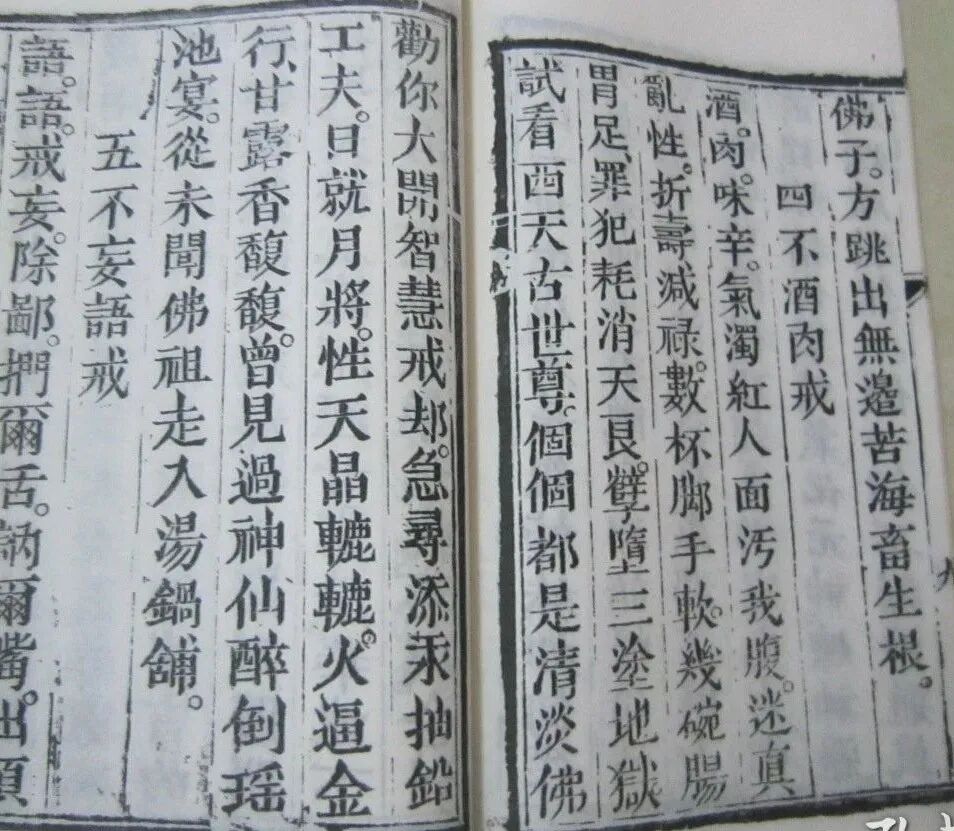 佛子。方跳出無邉苦海畜生根。
四不酒肉戒
酒。肉。味辛。氣濁紅人面汚我腹。迷真
亂性。折壽減禄。數杯脚手軟。幾碗腸
胃足罪犯耗消天良。孽墮三塗地獄
試看西天古世尊。個個都是清淡佛
勸你大開智慧戒却。急尋添汞抽鉛
工夫。日就月將。性天晶轆轆。火逼金
行、甘露香馥馥。曾見。過神仙醉倒瑶
池宴。從未聞佛祖走入湯鍋舖。
五不妄語戒
語。語。戒妄。除鄙。捫爾舌。訥爾嘴。出